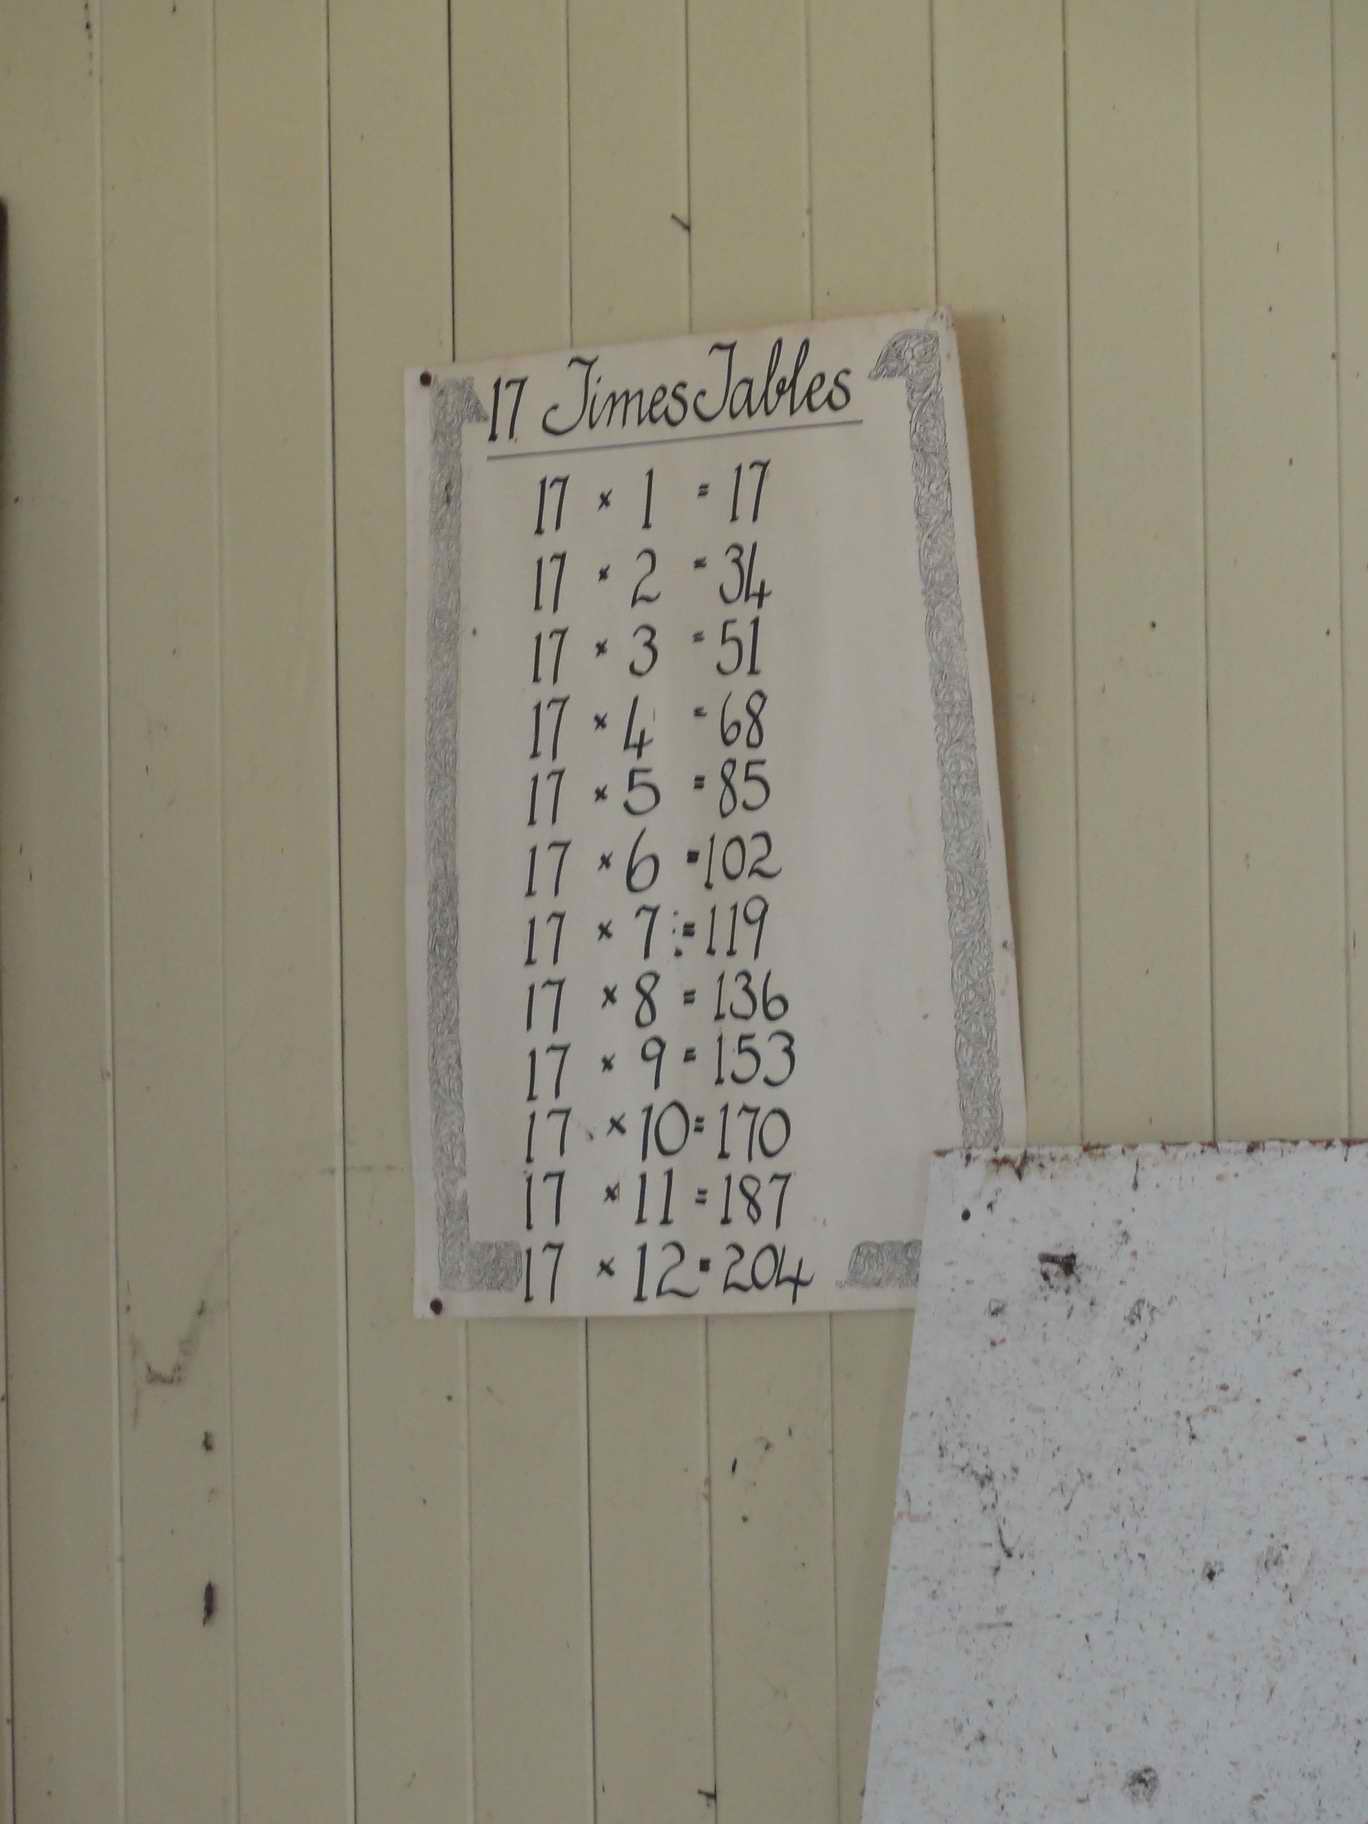 17 Times Tables
17 × 1 = 17
17 × 2 = 34
17 × 3 = 51
17 × 4 = 68
17 × 5 = 85
17 × 6 = 102
17 × 7 = 119
17 × 8 = 136
17 × 9 = 153
17 × 10 = 170
17 × 11 = 187
17 × 12 = 204